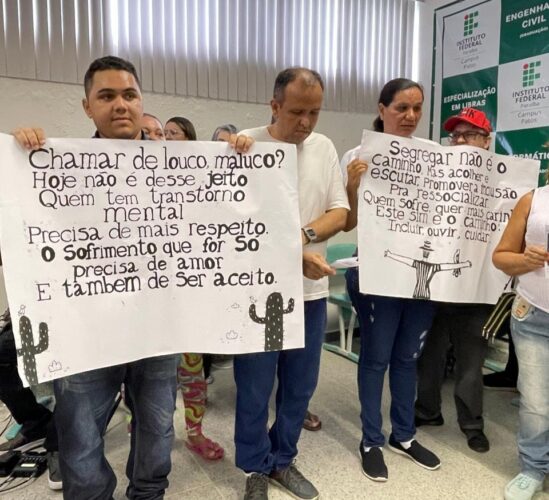 Chamar de louco, maluco?
Hoje não é desse jeito
Quem tem transtorno
mental
Precisa de mais respeito.
O Sofrimento que for Só
precisa de amor
E também de Ser aceito.
Segregar não é o
caminho. Mas acolher e
escutar, Promover a inclusão
Pra ressocializar
Quem sofre quer mais carinho
Este sim é o caminho:
Incluir, ouvir, cuidar.
INSTITUTO
FEDERAL
Paraíba
Campus
Patos
ENGENHARIA
CIVIL
ESPECIALIZAÇÃO
EM LIBRAS
INSTITUTO
FEDERAL
Paraíba
Campus Patos